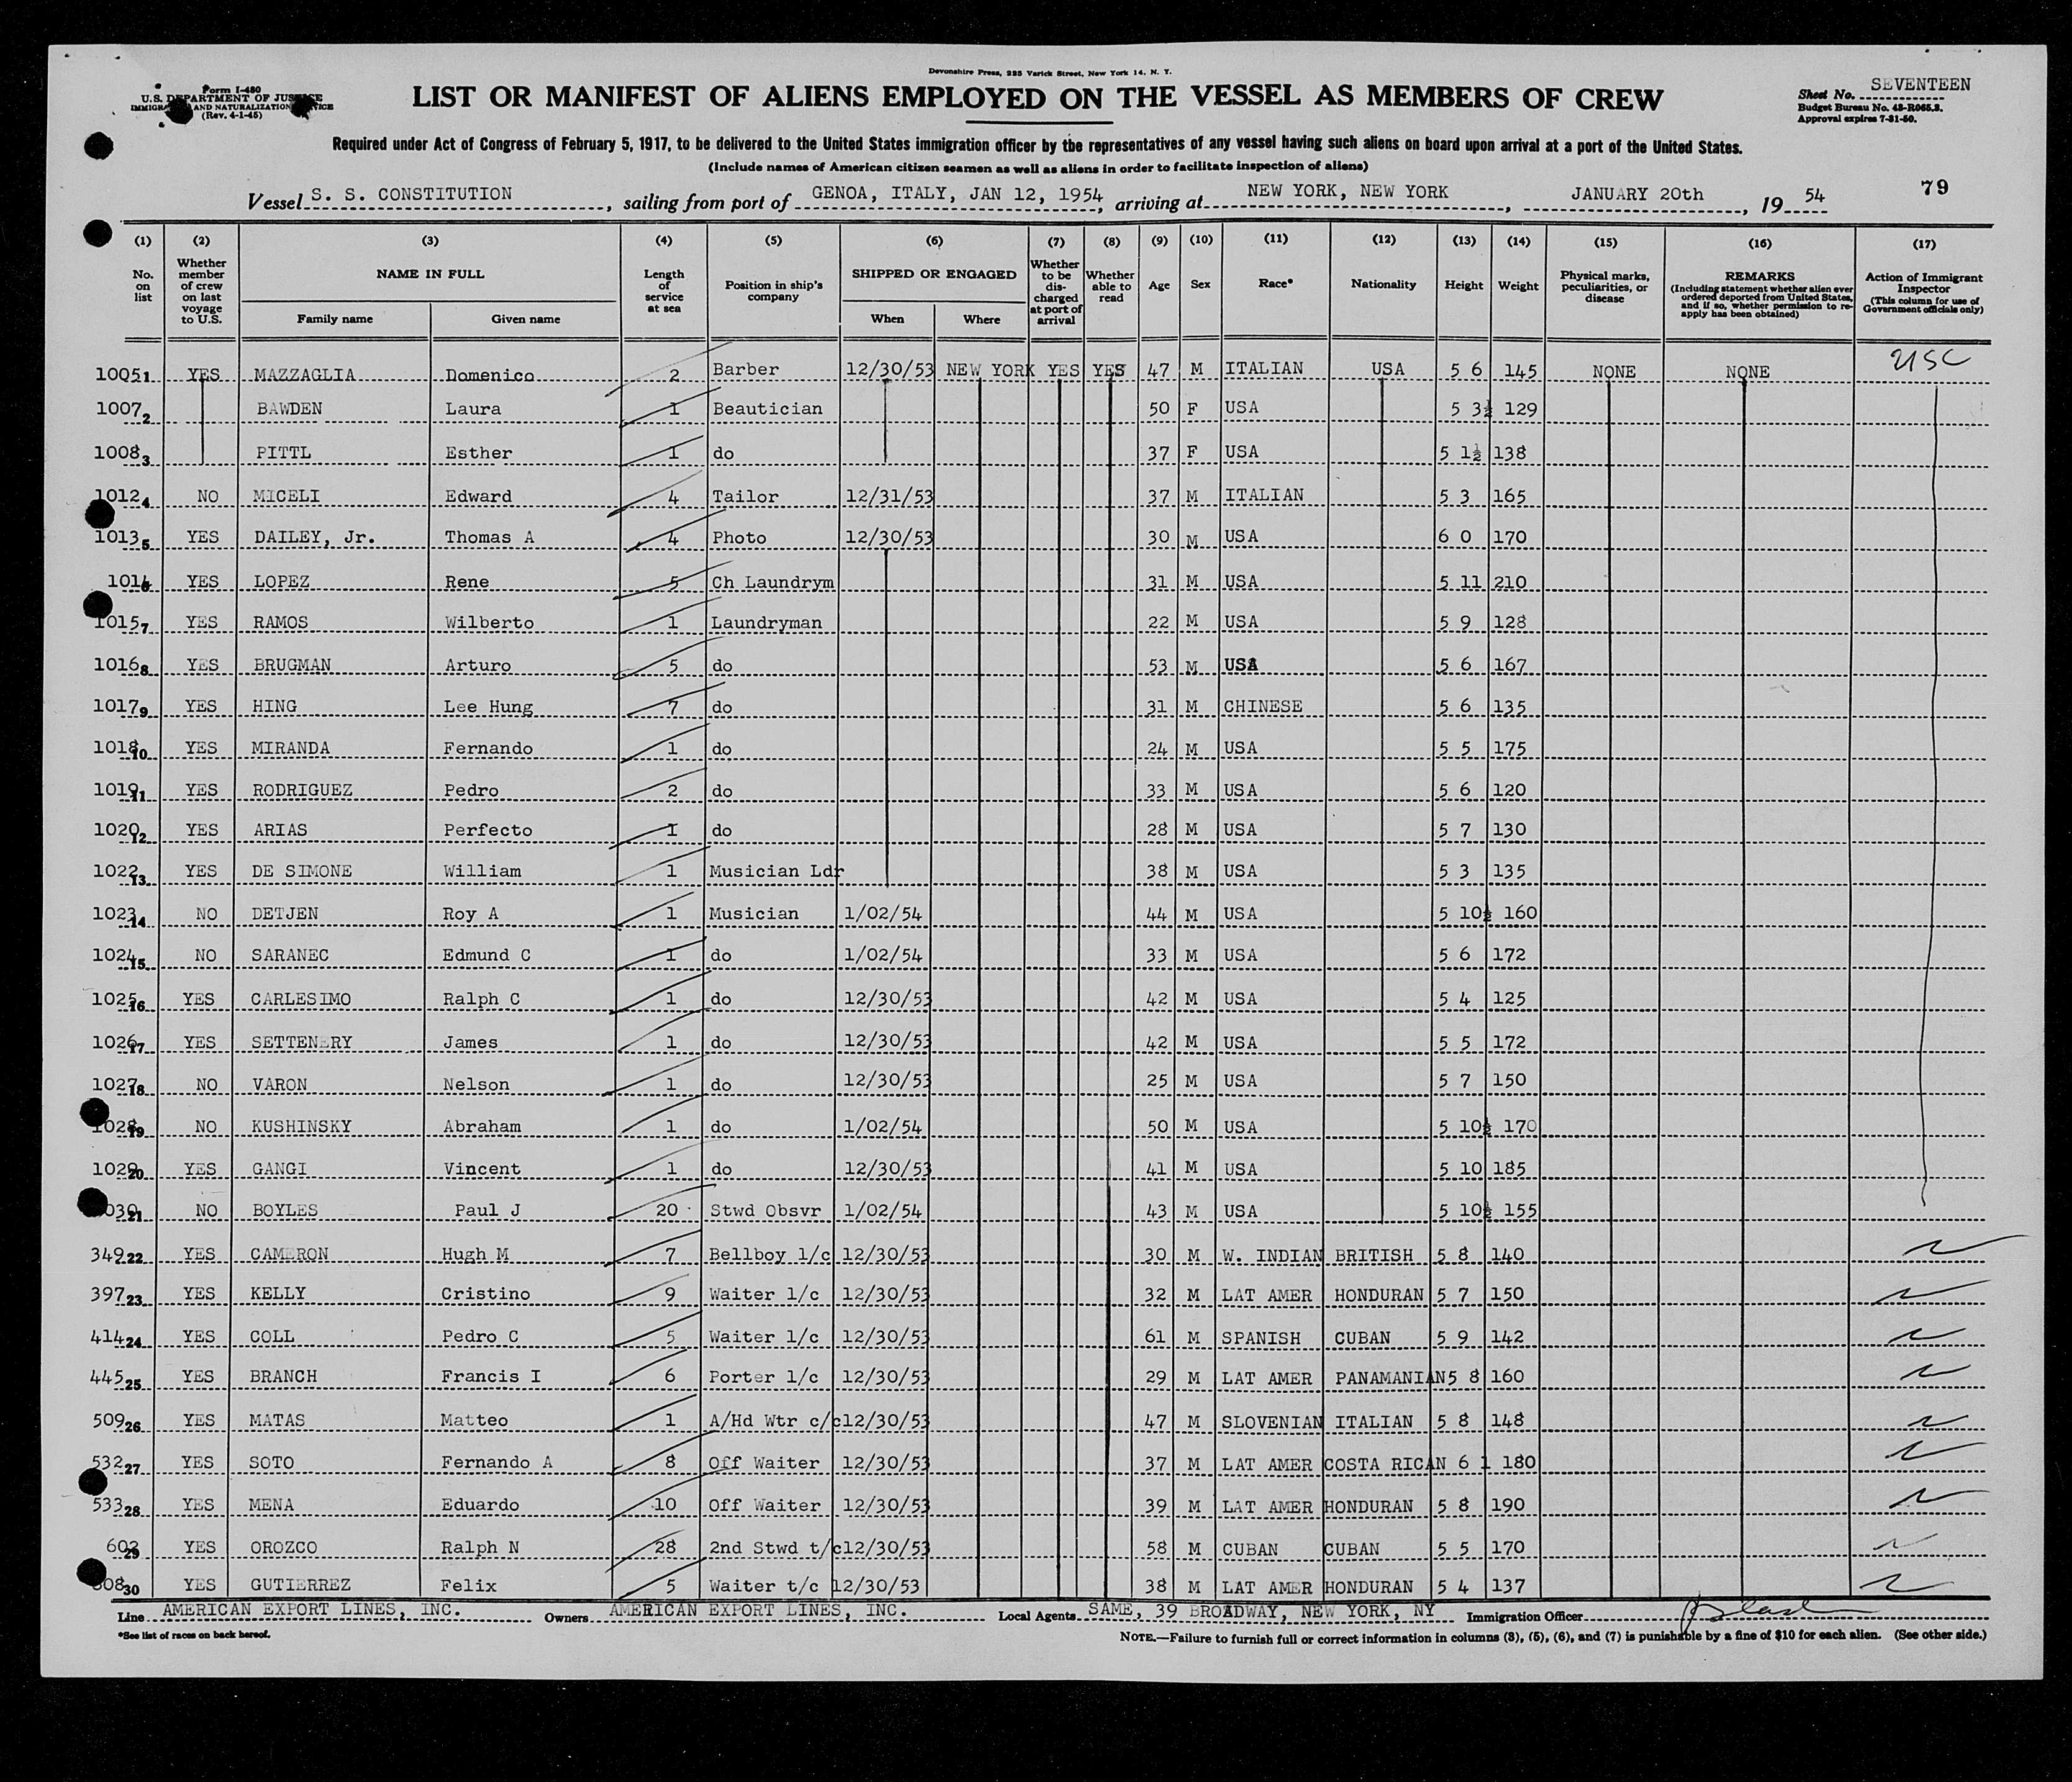 Devonshire Press, 225 Varick Street, New York 14, N. Y.
Form I-480
U.S. DEPARTMENT OF JUSTICE
IMMIGRATION AND NATURALIZATION SERVICE
(Rev. 4-1-45)
LIST OR MANIFEST OF ALIENS EMPLOYED ON THE VESSEL AS MEMBERS OF CREW
Sheet No. SEVENTEEN
Budget Bureau No. 43-R065.3.
Approval expires 7-31-50.
Required under Act of Congress of February 5, 1917, to be delivered to the United States immigration officer by the representatives of any vessel having such aliens on board upon arrival at a port of the United States.
(Include names of American citizen seamen as well as aliens in order to facilitate inspection of aliens)
Vessel S. S. CONSTITUTION, sailing from port of GENOA, ITALY, JAN 12, 1954, arriving at NEW YORK, NEW YORK, JANUARY 20th, 19 54
79
(1) (2) (3) (4) (5) (6) (7) (8) (9) (10) (11) (12) (13) (14) (15) (16) (17)
No. on list
Whether member of crew on last voyage to U.S.
NAME IN FULL
Family name Given name
Length of service at sea
Position in ship's company
SHIPPED OR ENGAGED
When Where
Whether to be discharged at port of arrival
Whether able to read
Age Sex Race* Nationality Height Weight
Physical marks, peculiarities, or disease
REMARKS
(Including statement whether alien ever ordered deported from United States, and if so, whether permission to reapply has been obtained)
Action of Immigrant Inspector
(This column for use of Government officials only)
1005 1 YES MAZZAGLIA Domenico 2 Barber 12/30/53 NEW YORK YES YES 47 M ITALIAN USA 5 6 145 NONE NONE USC
1007 2 BAWDEN Laura 1 Beautician 50 F USA 5 3½ 129
1008 3 PITTL Esther 1 do 37 F USA 5 1½ 138
1012 4 NO MICELI Edward 4 Tailor 12/31/53 37 M ITALIAN 5 3 165
1013 5 YES DAILEY, Jr. Thomas A 4 Photo 12/30/53 30 M USA 6 0 170
1014 6 YES LOPEZ Rene 5 Ch Laundrym 31 M USA 5 11 210
1015 7 YES RAMOS Wilberto 1 Laundryman 22 M USA 5 9 128
1016 8 YES BRUGMAN Arturo 5 do 53 M USA 5 6 167
1017 9 YES HING Lee Hung 7 do 31 M CHINESE 5 6 135
1018 10 YES MIRANDA Fernando 1 do 24 M USA 5 5 175
1019 11 YES RODRIGUEZ Pedro 2 do 33 M USA 5 6 120
1020 12 YES ARIAS Perfecto 1 do 28 M USA 5 7 130
1022 13 YES DE SIMONE William 1 Musician Ldr 38 M USA 5 3 135
1023 14 NO DETJEN Roy A 1 Musician 1/02/54 44 M USA 5 10½ 160
1024 15 NO SARANEC Edmund C 1 do 1/02/54 33 M USA 5 6 172
1025 16 YES CARLESIMO Ralph C 1 do 12/30/53 42 M USA 5 4 125
1026 17 YES SETTENERY James 1 do 12/30/53 42 M USA 5 5 172
1027 18 NO VARON Nelson 1 do 12/30/53 25 M USA 5 7 150
1028 19 NO KUSHINSKY Abraham 1 do 1/02/54 50 M USA 5 10½ 170
1029 20 YES GANGI Vincent 1 do 12/30/53 41 M USA 5 10 185
1030 21 NO BOYLES Paul J 20 Stwd Obsvr 1/02/54 43 M USA 5 10½ 155
349 22 YES CAMERON Hugh M 7 Bellboy 1/c 12/30/53 30 M W. INDIAN BRITISH 5 8 140
397 23 YES KELLY Cristino 9 Waiter 1/c 12/30/53 32 M LAT AMER HONDURAN 5 7 150
414 24 YES COLL Pedro C 5 Waiter 1/c 12/30/53 61 M SPANISH CUBAN 5 9 142
445 25 YES BRANCH Francis I 6 Porter 1/c 12/30/53 29 M LAT AMER PANAMANIAN 5 8 160
509 26 YES MATAS Matteo 1 A/Hd Wtr c/c 12/30/53 47 M SLOVENIAN ITALIAN 5 8 148
532 27 YES SOTO Fernando A 8 Off Waiter 12/30/53 37 M LAT AMER COSTA RICAN 6 1 180
533 28 YES MENA Eduardo 10 Off Waiter 12/30/53 39 M LAT AMER HONDURAN 5 8 190
602 29 YES OROZCO Ralph N 28 2nd Stwd t/c 12/30/53 58 M CUBAN CUBAN 5 5 170
608 30 YES GUTIERREZ Felix 5 Waiter t/c 12/30/53 38 M LAT AMER HONDURAN 5 4 137
Line AMERICAN EXPORT LINES, INC. Owners AMERICAN EXPORT LINES, INC. Local Agents SAME, 39 BROADWAY, NEW YORK, NY Immigration Officer
*See list of races on back hereof.
NOTE.—Failure to furnish full or correct information in columns (3), (5), (6), and (7) is punishable by a fine of $10 for each alien. (See other side.)